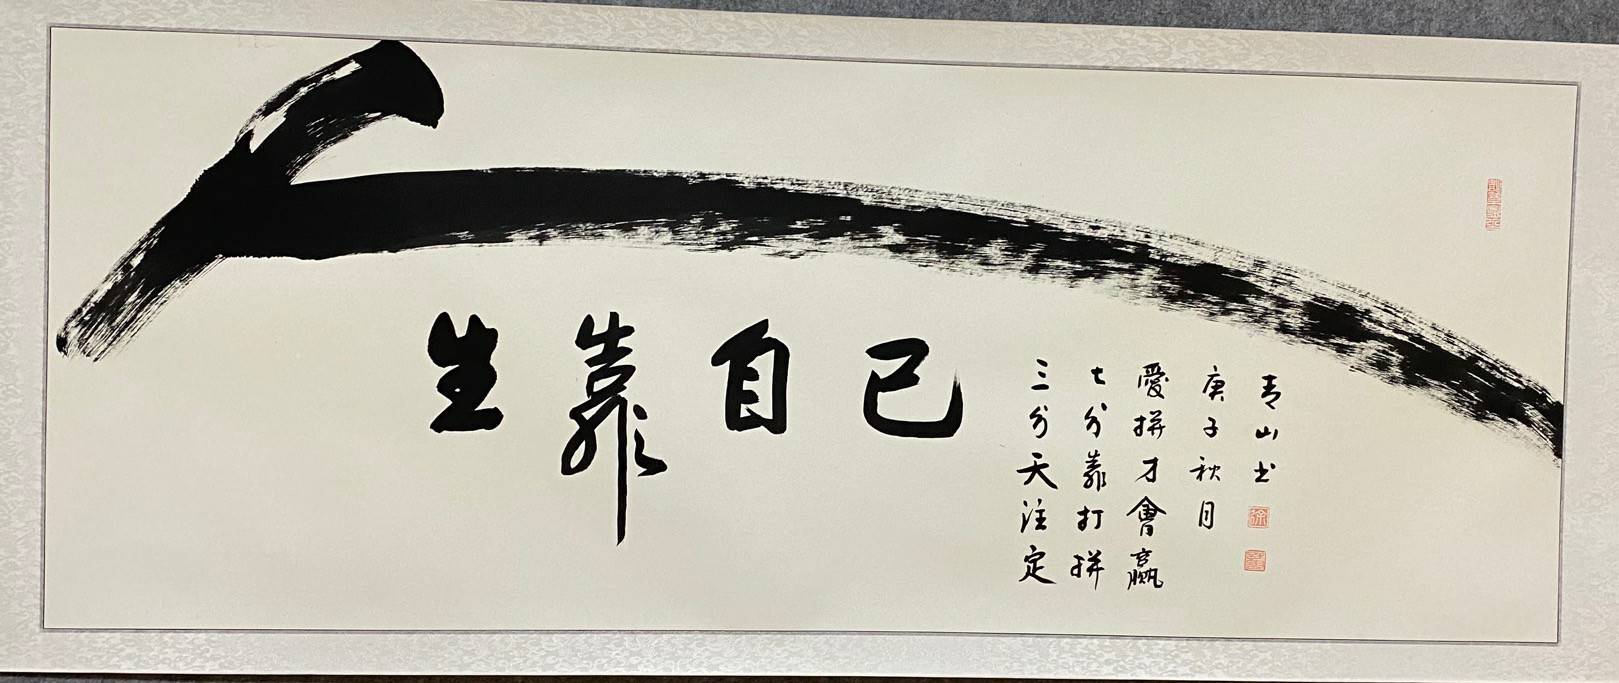 人生靠自己
三分天注定
七分靠打拼
愛拼才會贏
庚子秋月
青山书